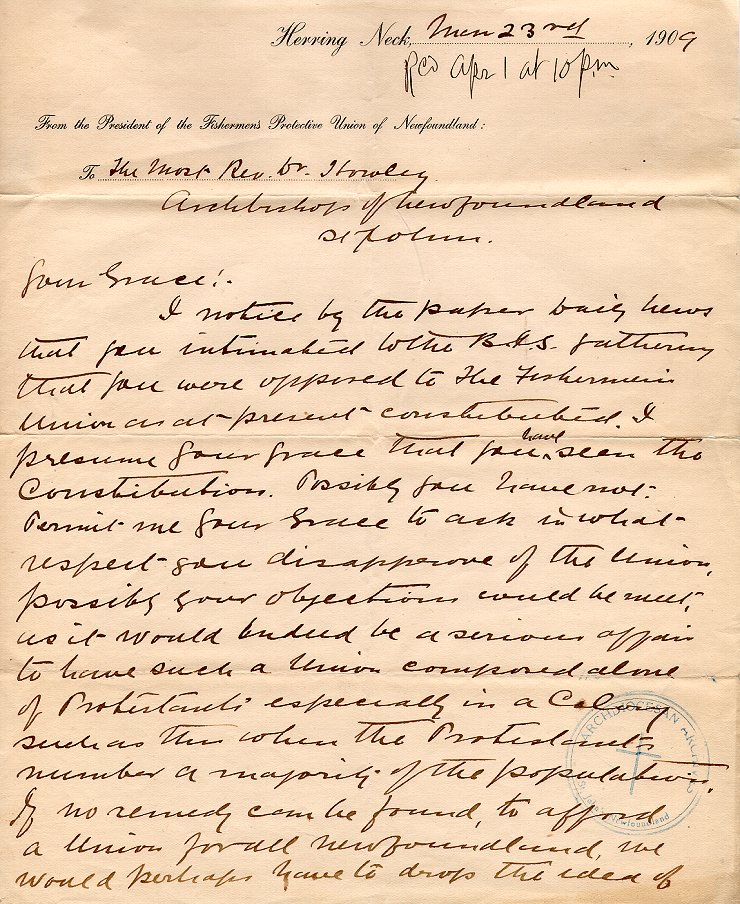 Herring Neck, Mar 23rd, 1909
Rcd Apr 1 at 10 p.m.
From the President of the Fishermen's Protective Union of Newfoundland:
To The Most Rev. Dr. Howley
Archbishop of Newfoundland
St John.
Your Grace:-
I notice by the paper Daily News
that you intimated to the B.I.S. gathering
that you were opposed to the Fishermen's
Union as at present constituted. I
presume your grace that you have seen the
Constitution. Possibly you have not.
Permit me Your Grace to ask in what
respect you disapprove of the Union,
possibly your objections could be meet,
as it would indeed be a serious affair
to have such a Union composed alone
of Protestants especially in a Colony
such as this when the Protestants
number a majority of the population.
If no remedy can be found, to afford
a Union for all Newfoundland, we
would perhaps have to drop the idea of
ARCHDIOCESAN ARCHIVES
St. John's Newfoundland